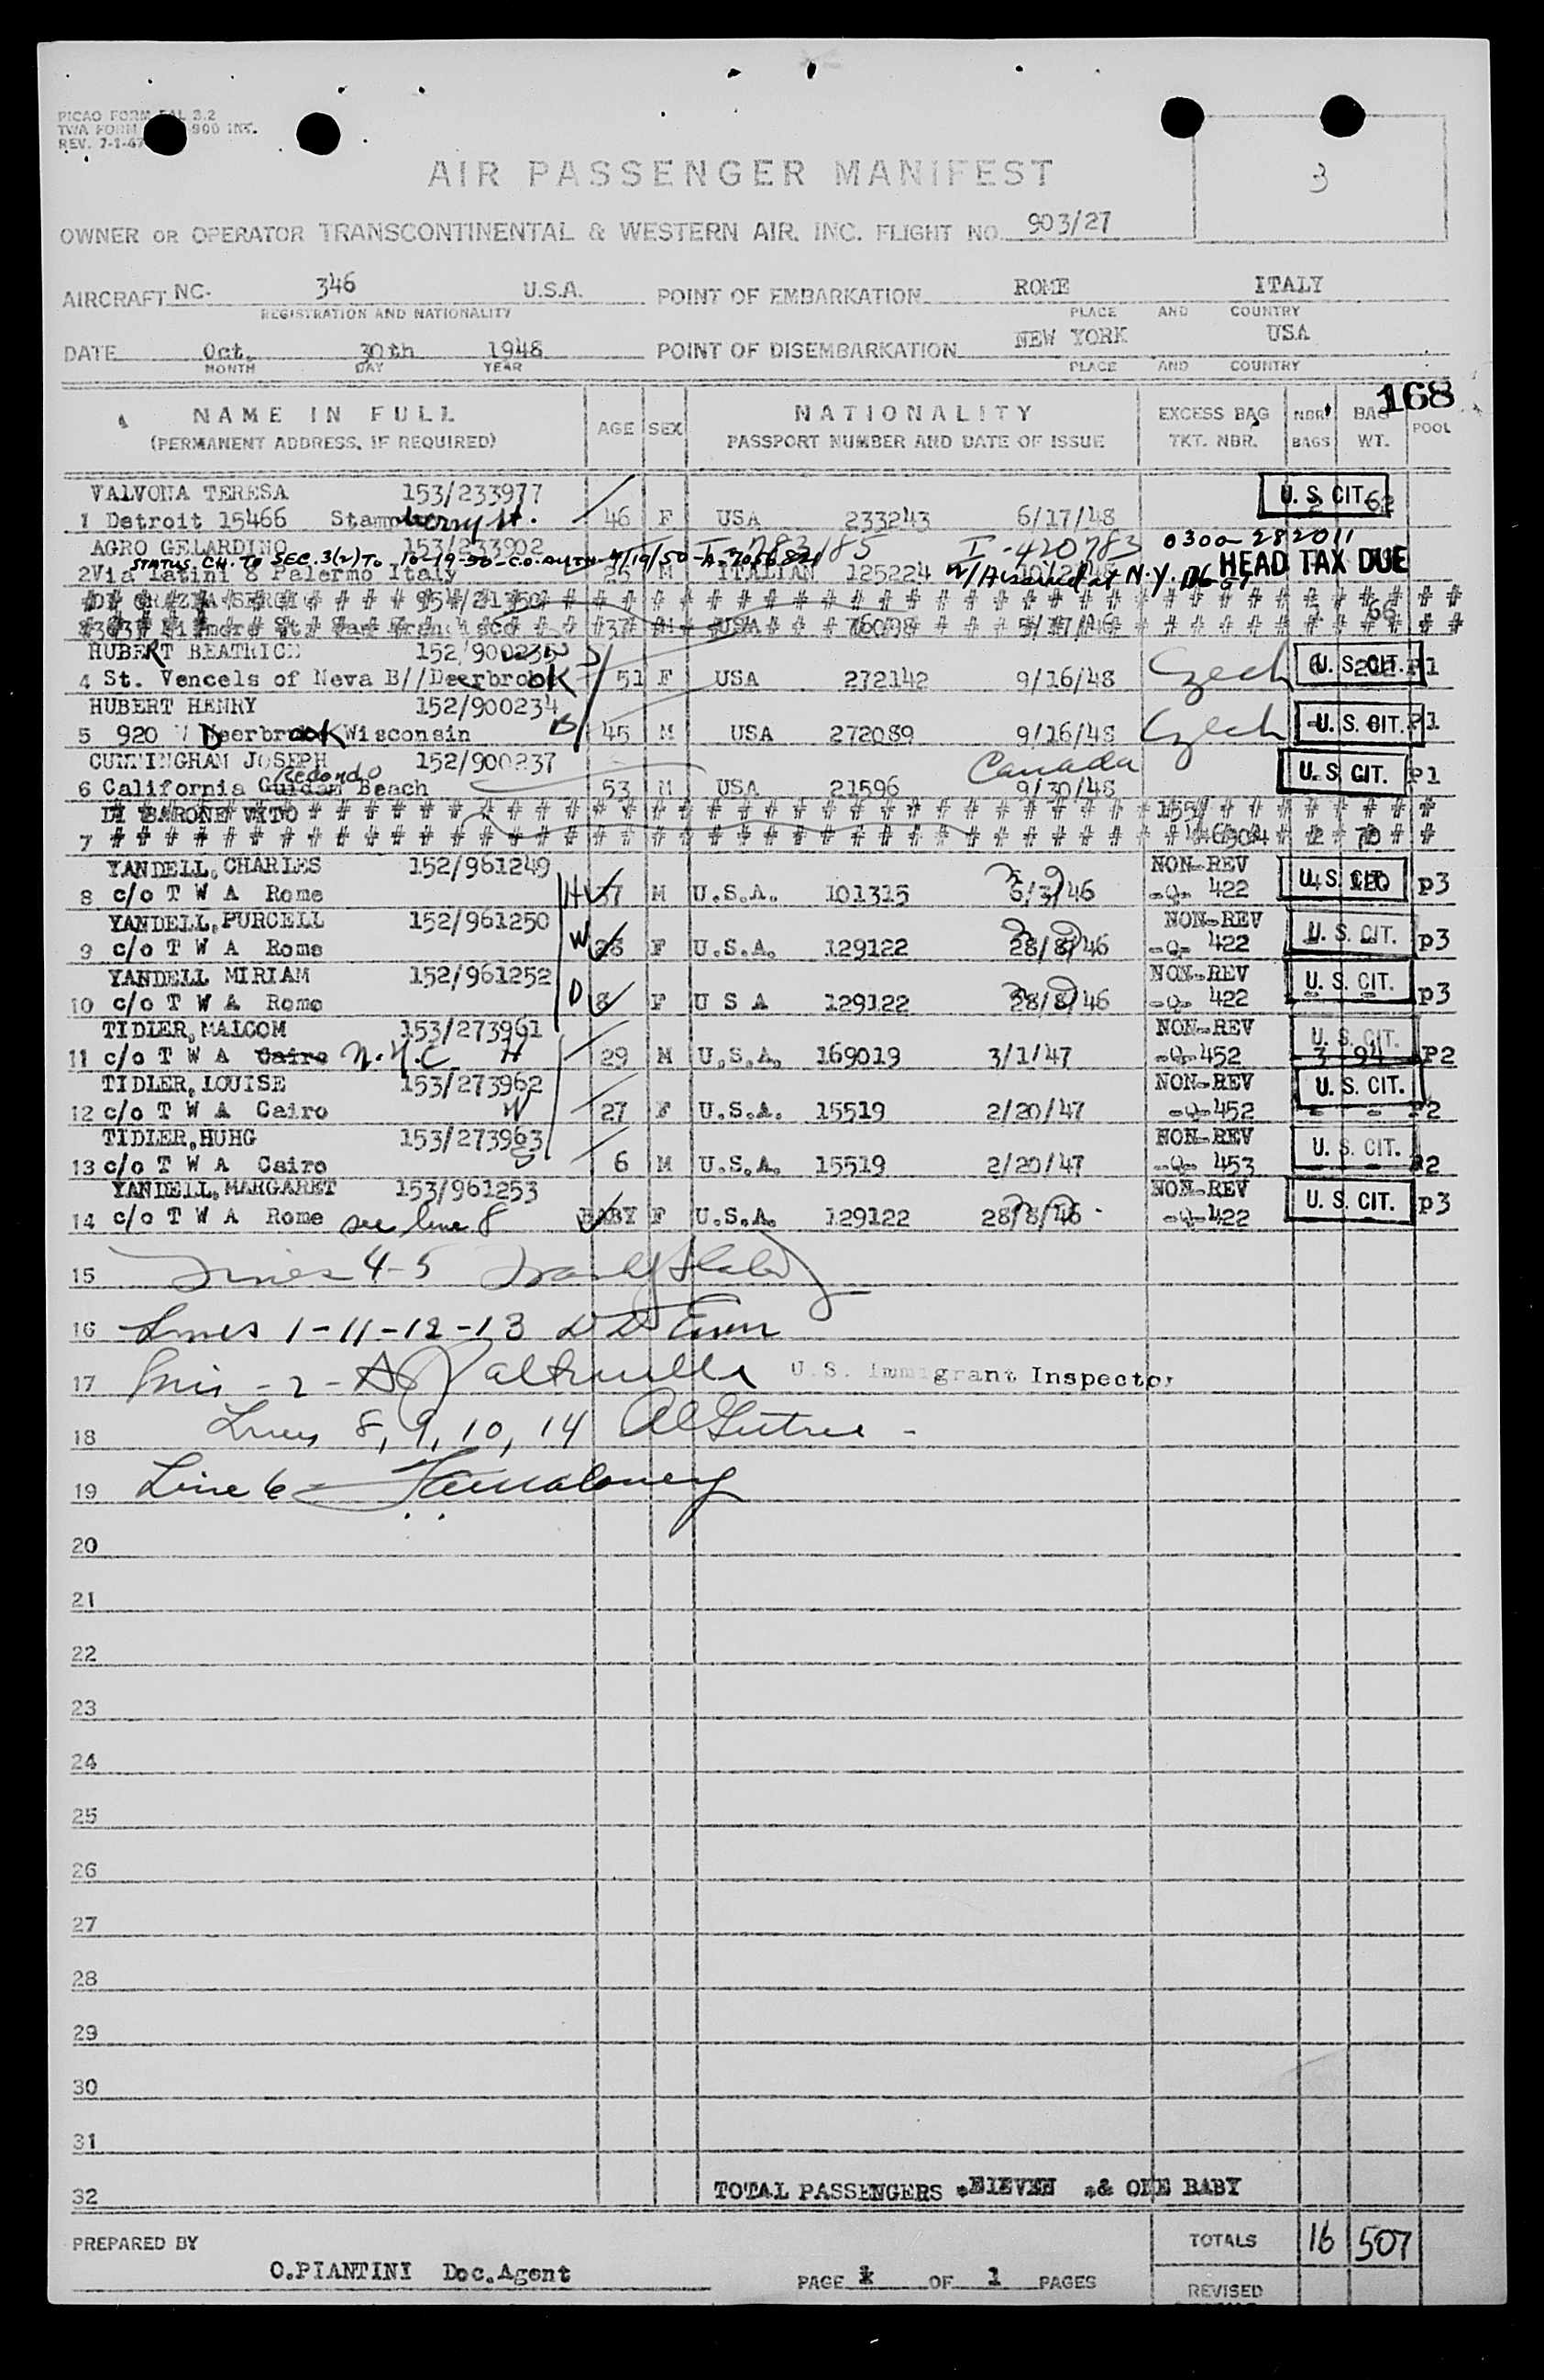 PICAO FORM FAL 3.2
TWA FORM 900 INT.
REV. 7-1-47
AIR PASSENGER MANIFEST
3
OWNER OR OPERATOR TRANSCONTINENTAL & WESTERN AIR, INC. FLIGHT NO. 903/27
AIRCRAFT NC- 346 U.S.A. POINT OF EMBARKATION ROME ITALY
REGISTRATION AND NATIONALITY PLACE AND COUNTRY
DATE Oct. 30th 1948 POINT OF DISEMBARKATION NEW YORK USA
MONTH DAY YEAR PLACE AND COUNTRY
168
NAME IN FULL AGE SEX NATIONALITY EXCESS BAG NBR BAG POOL
(PERMANENT ADDRESS, IF REQUIRED) PASSPORT NUMBER AND DATE OF ISSUE TKT. NBR. BAGS WT.
VALVONA TERESA 153/233977 U. S. CIT.
1 Detroit 15466 46 F USA 233243 6/17/48 62
AGRO GELARDINO 153/233902 I-420783 0300-282011
STATUS CH. TO SEC. 3(2) TO 10-19-50-C.O. AUTH. HEAD TAX DUE
2 Via Latini 8 Palermo Italy 26 M ITALIAN 125224
DI GRAZIA SERGIO
37 M USA 66
HUBERT BEATRICE 152/900235 U. S. CIT.
4 St. Vencels of Neva B//Deerbrook 51 F USA 272142 9/16/48 Czech P1
HUBERT HENRY 152/900234
5 920 Deerbrook Wisconsin 45 M USA 272089 9/16/48 Czech U. S. CIT. P1
CUNNINGHAM JOSEPH 152/900237 Canada
Redondo
6 California Beach 53 M USA 21596 9/30/48 U. S. CIT. P1
DI BARONE VITO
7 2 70
YANDELL, CHARLES 152/961249 NON-REV
8 c/o T W A Rome H 37 M U.S.A. 101315 6/3/46 -0- 422 U. S. CIT. p3
YANDELL, PURCELL 152/961250 NON-REV
9 c/o T W A Rome W F U.S.A. 129122 28/8/46 -0- 422 U. S. CIT. p3
YANDELL MIRIAM 152/961252 NON-REV
10 c/o T W A Rome D 8 F U S A 129122 28/8/46 -0- 422 U. S. CIT. p3
TIDLER, MALCOM 153/273961 NON-REV U. S. CIT.
11 c/o T W A Cairo N.Y.C. H 29 M U.S.A. 169019 3/1/47 -0-452 3 94 P2
TIDLER, LOUISE 153/273962 NON-REV U. S. CIT.
12 c/o T W A Cairo W 27 F U.S.A. 15519 2/20/47 -0-452 - - P2
TIDLER, HUHG 153/273963 NON-REV U. S. CIT.
13 c/o T W A Cairo S 6 M U.S.A. 15519 2/20/47 -0- 453 P2
YANDELL, MARGARET 153/961253 NON-REV
14 c/o T W A Rome see line 8 BABY F U.S.A. 129122 28/8/46 -0-422 U. S. CIT. p3
15 Lines 4-5
16 Lines 1-11-12-13
17 2 U.S. Immigrant Inspector
18 Lines 8, 9, 10, 14
19 Line 6
20
21
22
23
24
25
26
27
28
29
30
31
32 TOTAL PASSENGERS ELEVEN & ONE BABY
PREPARED BY TOTALS 16 507
O.PIANTINI Doc.Agent PAGE 1 OF 1 PAGES REVISED